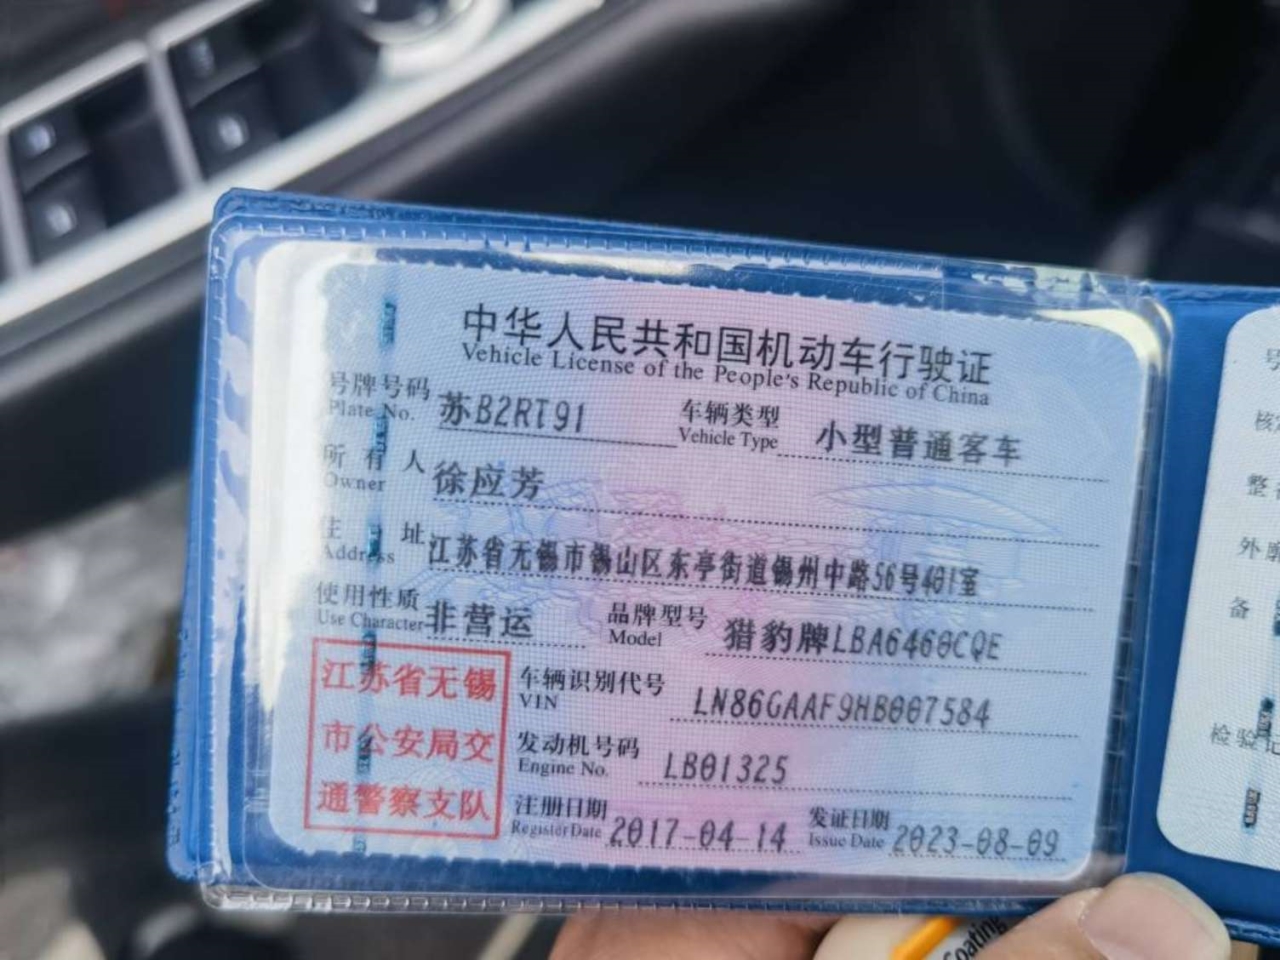 中华人民共和国机动车行驶证
Vehicle License of the People's Republic of China
号牌号码 苏B2RT91 车辆类型 小型普通客车
Plate No. Vehicle Type
所有人 徐应芳
Owner
住址 江苏省无锡市锡山区东亭街道锡州中路56号401室
Address
使用性质 非营运 品牌型号 猎豹牌LBA6460CQE
Use Character Model
江苏省无锡
市公安局交
通警察支队
车辆识别代号 LN86GAAF9HB007584
VIN
发动机号码 LB01325
Engine No.
注册日期 2017-04-14 发证日期 2023-08-09
Register Date Issue Date
号
核
整
外廓
备
检验记
Coating